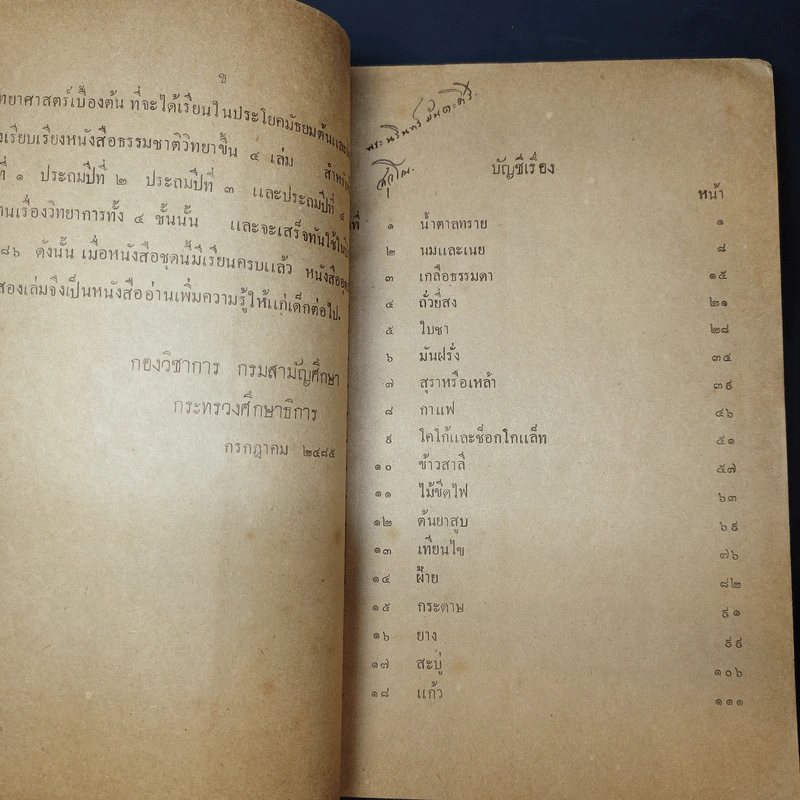 ข
ทยาศาสตร์เบื้องต้น ที่จะได้เรียนในประโยคมัธยมต้นและ
งเรียบเรียงหนังสือธรรมชาติวิทยาขึ้น ๔ เล่ม สำหรับ
ที่ ๑ ประถมปีที่ ๒ ประถมปีที่ ๓ และประถมปีที่ ๔
านเรื่องวิทยาการทั้ง ๔ ขั้นนั้น และจะเสร็จทันใช้ใน
๘๖ ดังนั้น เมื่อหนังสือชุดนี้มีเรียนครบแล้ว หนังสือ
สองเล่มจึงเป็นหนังสืออ่านเพิ่มความรู้ให้แก่เด็กต่อไป.
กองวิชาการ กรมสามัญศึกษา
กระทรวงศึกษาธิการ
กรกฎาคม ๒๔๘๕
บัญชีเรื่อง
หน้า
๑ น้ำตาลทราย ๑
๒ นมและเนย ๘
๓ เกลือธรรมดา ๑๕
๔ ถั่วยี่สง ๒๑
๕ ใบชา ๒๘
๖ มันฝรั่ง ๓๔
๗ สุราหรือเหล้า ๓๙
๘ กาแฟ ๔๖
๙ โคโก้และช็อกโกแล็ท ๕๑
๑๐ ข้าวสาลี ๕๗
๑๑ ไม้ขีดไฟ ๖๓
๑๒ ต้นยาสูบ ๖๙
๑๓ เทียนไข ๗๖
๑๔ ฝ้าย ๘๒
๑๕ กระดาษ ๙๑
๑๖ ยาง ๙๙
๑๗ สะบู่ ๑๐๖
๑๘ แก้ว ๑๑๑